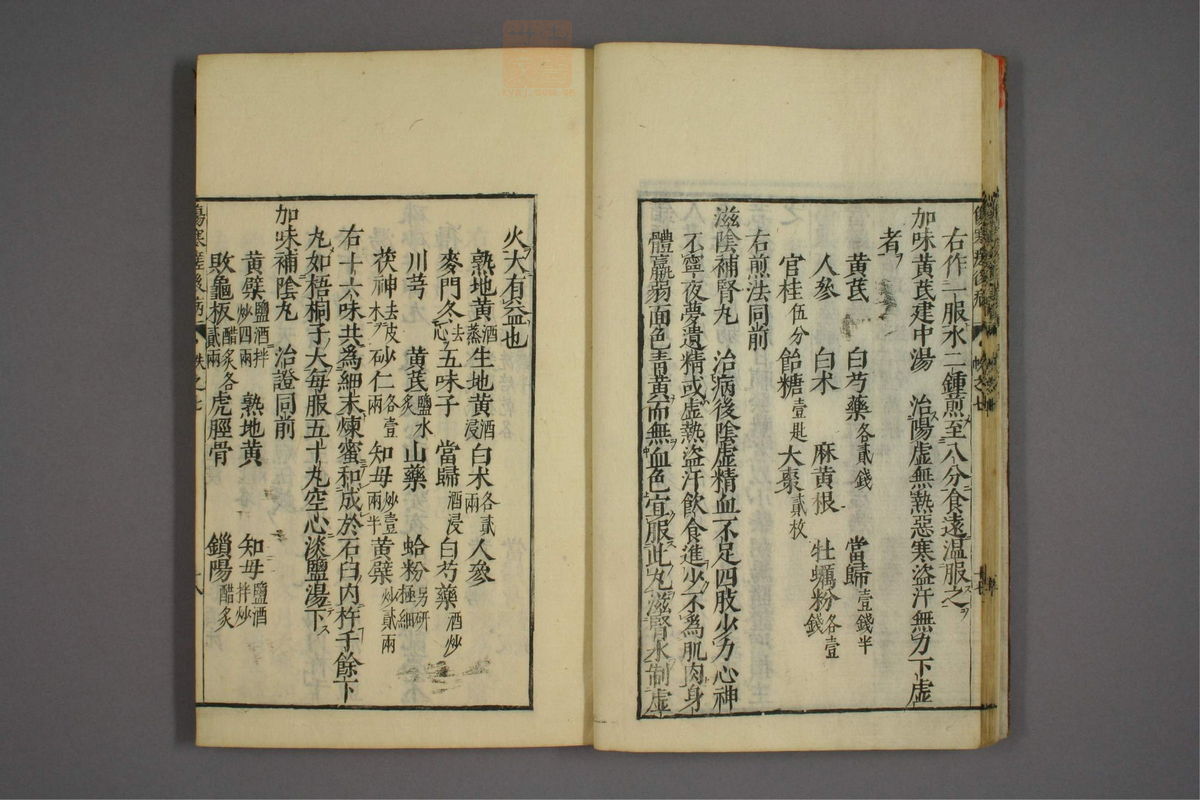 右作一服水二鍾煎至八分食遠温服之
加味黃芪建中湯 治陽虛無熱惡寒盜汗無力下虛
者
黃芪 白芍藥各貳錢 當歸壹錢半
人參 白朮 麻黃根 牡蠣粉各壹錢
官桂伍分 飴糖壹匙 大棗貳枚
右煎法同前
滋陰補腎丸 治病後陰虛精血不足四肢少力心神
不寧夜夢遺精或虛熱盜汗飲食進少不爲肌肉身
體羸弱面色青黃而無血色宜服此丸滋腎水制虛
火大有益也
熟地黃酒蒸 生地黃酒浸 白朮各貳兩 人參
麥門冬去心 五味子 當歸酒浸 白芍藥酒炒
川芎 黃芪鹽水炙 山藥 蛤粉另研極細
茯神去皮木 砂仁各壹兩 知母炒壹兩半 黃檗炒貳兩
右十六味共為細末煉蜜和成於石臼内杵千餘下
丸如梧桐子大每服五十丸空心淡鹽湯下
加味補陰丸 治證同前
黃檗鹽酒拌炒四兩 熟地黃 知母鹽酒拌炒
敗龜板醋炙各貳兩 虎脛骨 鎖陽醋炙